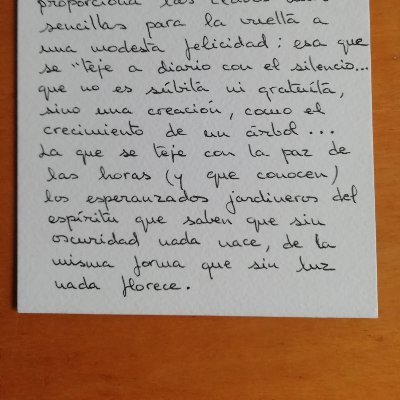 proporciona las claves más
sencillas para la vuelta a
una modesta felicidad: esa que
se "teje a diario con el silencio...
que no es súbita ni gratuíta,
sino una creación, como el
crecimiento de un árbol...
La que se teje con la paz de
las horas (y que conocen)
los esperanzados jardineros del
espíritu que saben que sin
oscuridad nada nace, de la
misma forma que sin luz
nada florece.